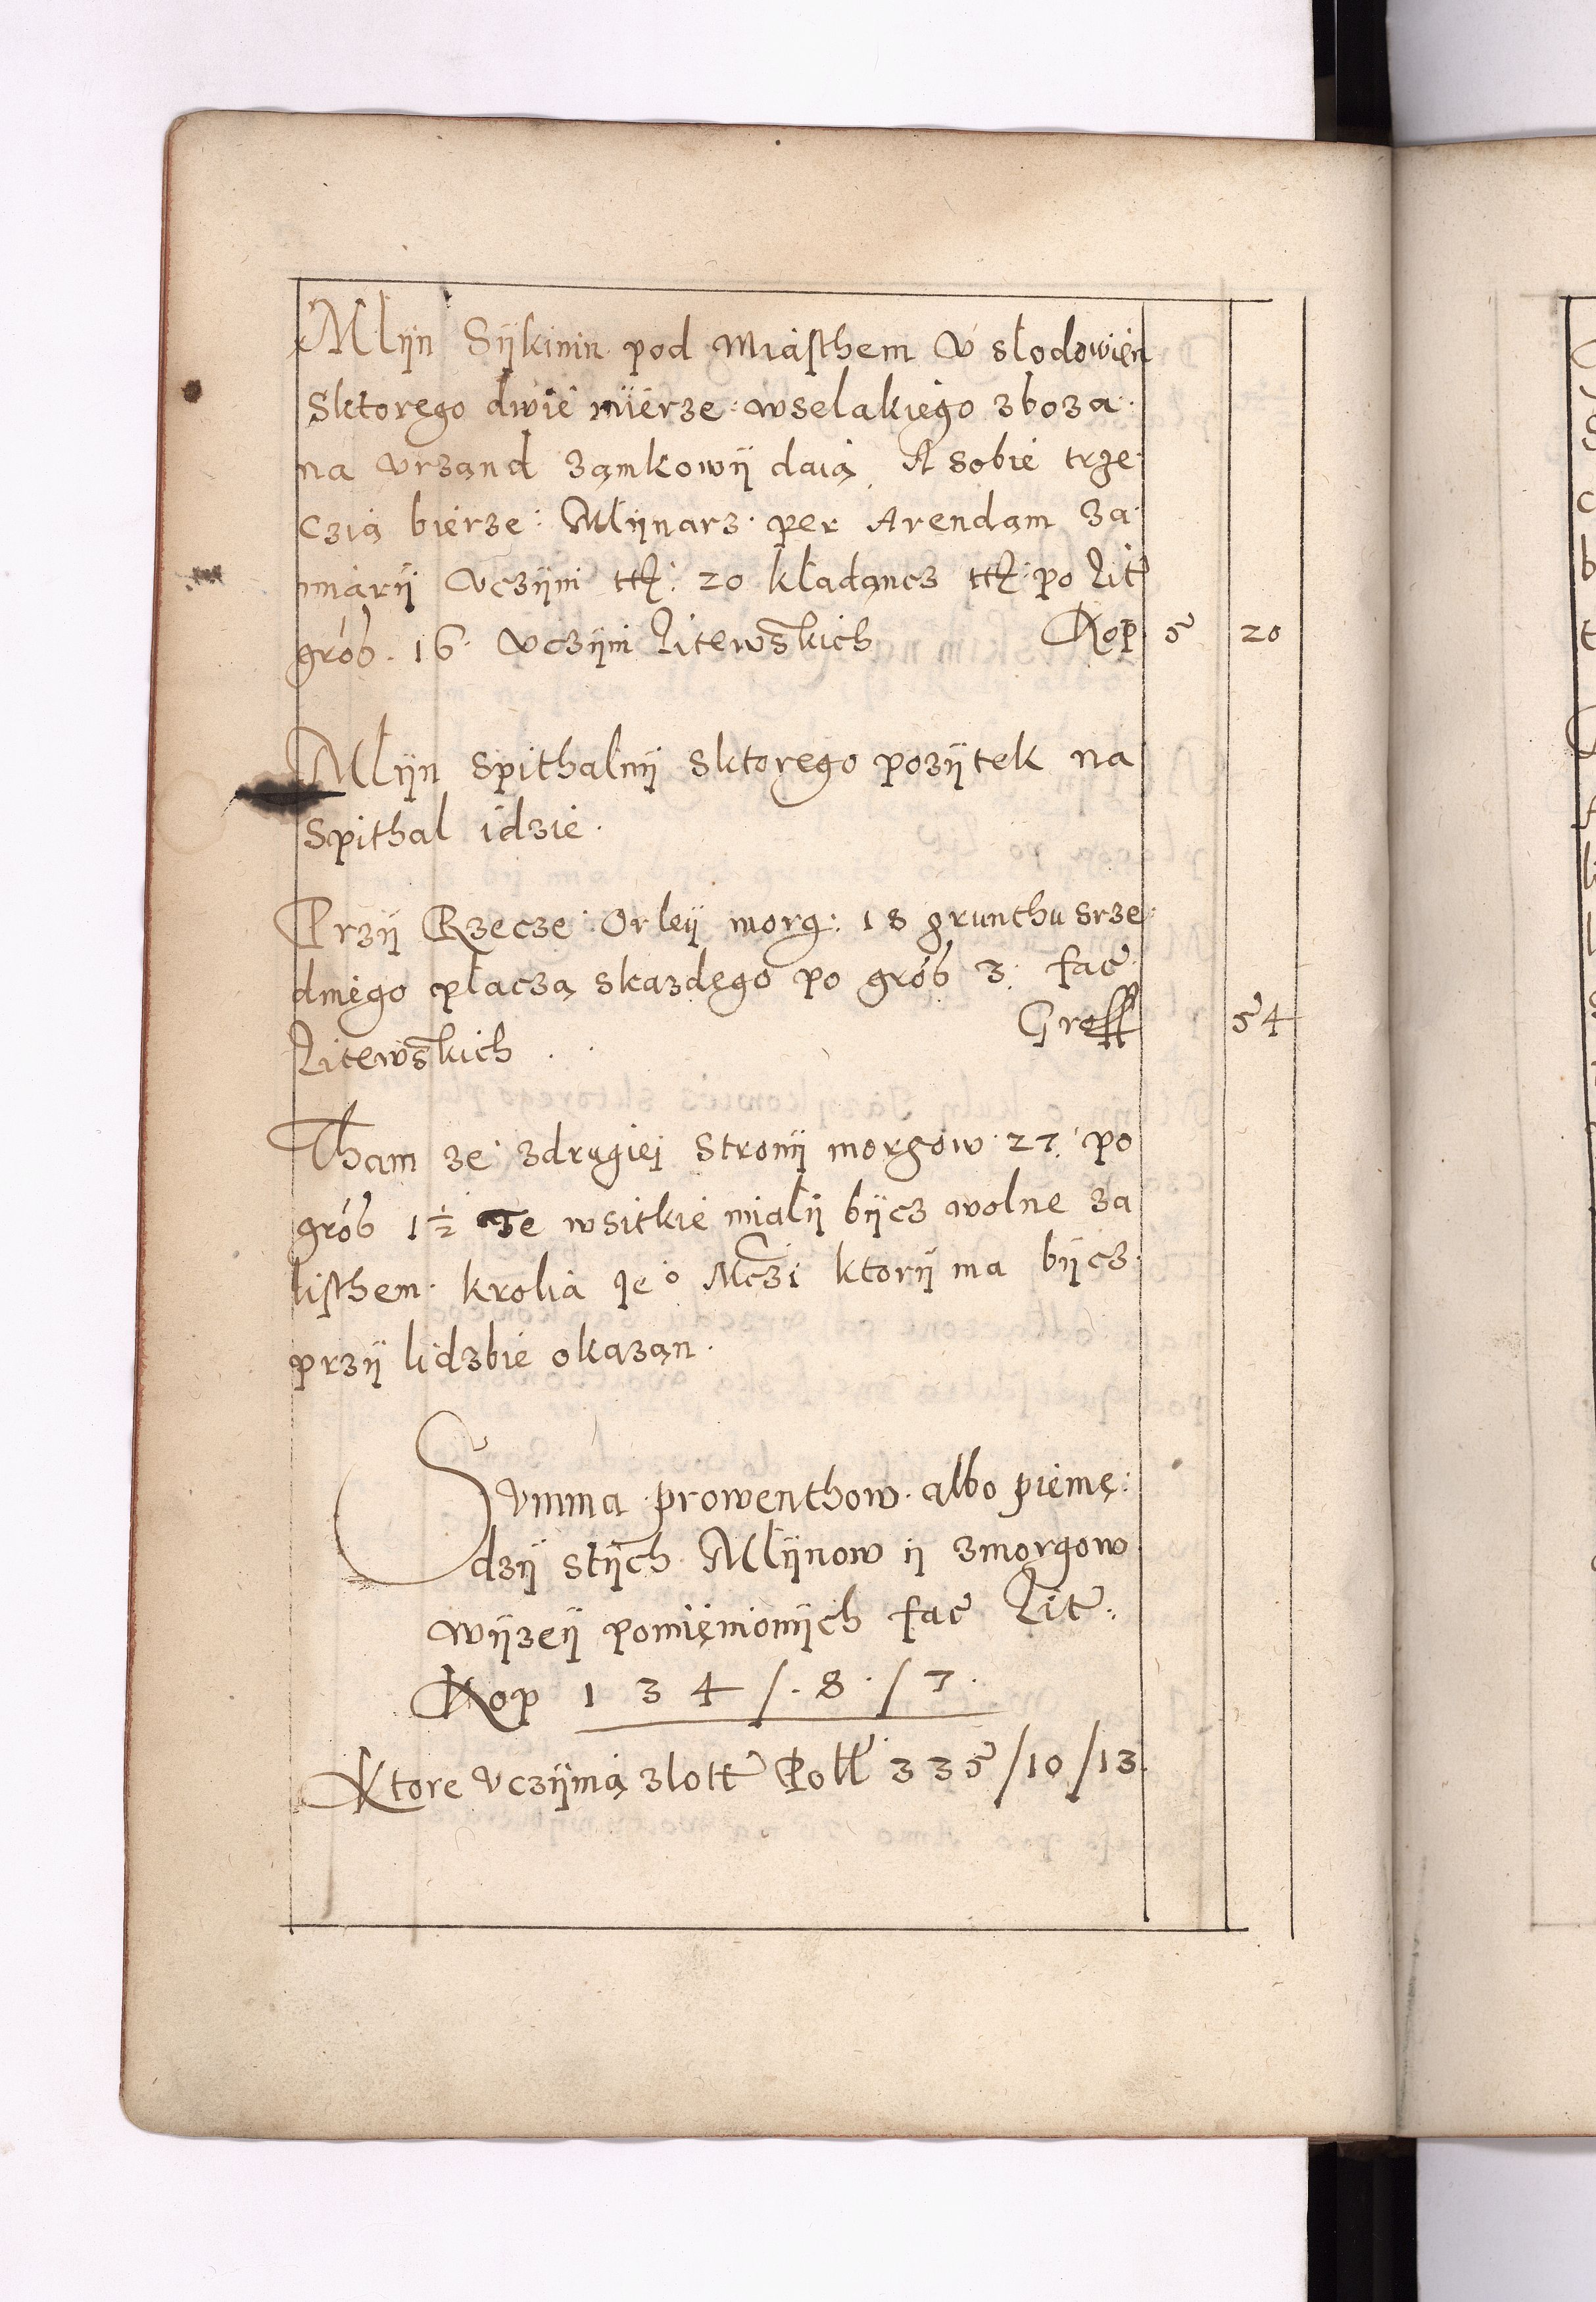 Mlijn Sijkinin pod Miasthem v slodowien
Sktorego dwie mierze wselakiego zboza
na vrzand zamkowij daią A sobie trze
czią bierze: Mlijnarz per Arendam za
miarij vczijni ttɮ: 20 kladąncz ttɮ: po Lit
grob. 16. vczijni Litewskich Kop 5 20
Mlijn Spithalnij sktorego pozijtek na
Spithal idzie.
Przij Rzecze Orleij morg: 18 grunthu srze
dniego placzą skazdego po grob 3. fac
Litewskich . . Gross 54
Tham ze zdrugiei Stronij morgow 27. po
grob 1½ Te wsitkie mialij bijcz wolne za
listhem krolia Jeo Mczi ktorij ma bijcz
przij lidzbie okazan.
Svmma prowenthow albo pienię:
dzij stijch Mlijnow ij zmorgow
wijzeij pomienionijch fac Lit:
Kop 134 /. 8. / 7.
Ktore vczijnią zlott Poll 335 / 10 / 13.